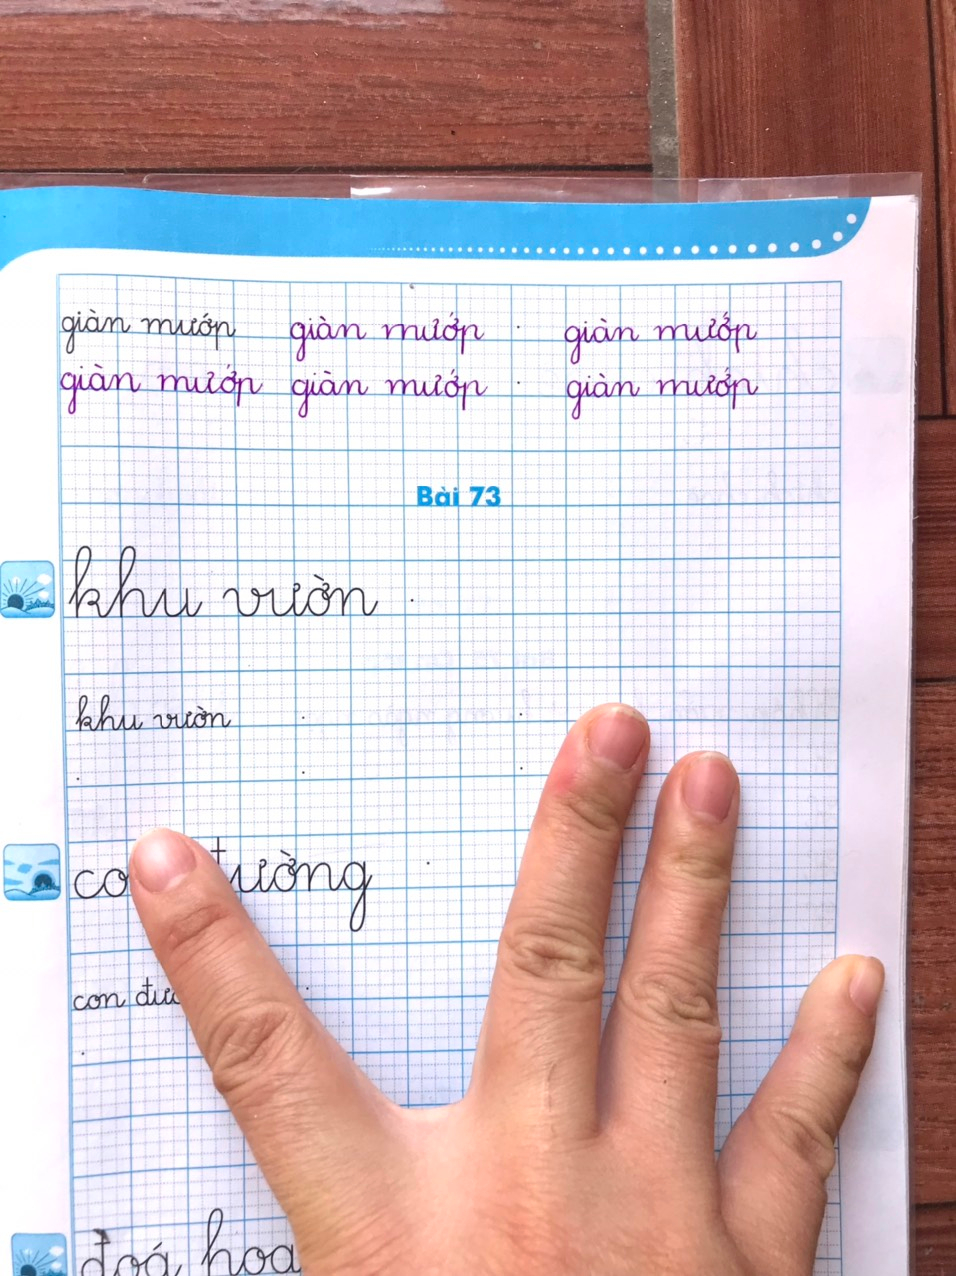 giàn mướp giàn mướp giàn mướp
giàn mướp giàn mướp giàn mướp
Bài 73
khu vườn
khu vườn
đường
con
đoá hoa